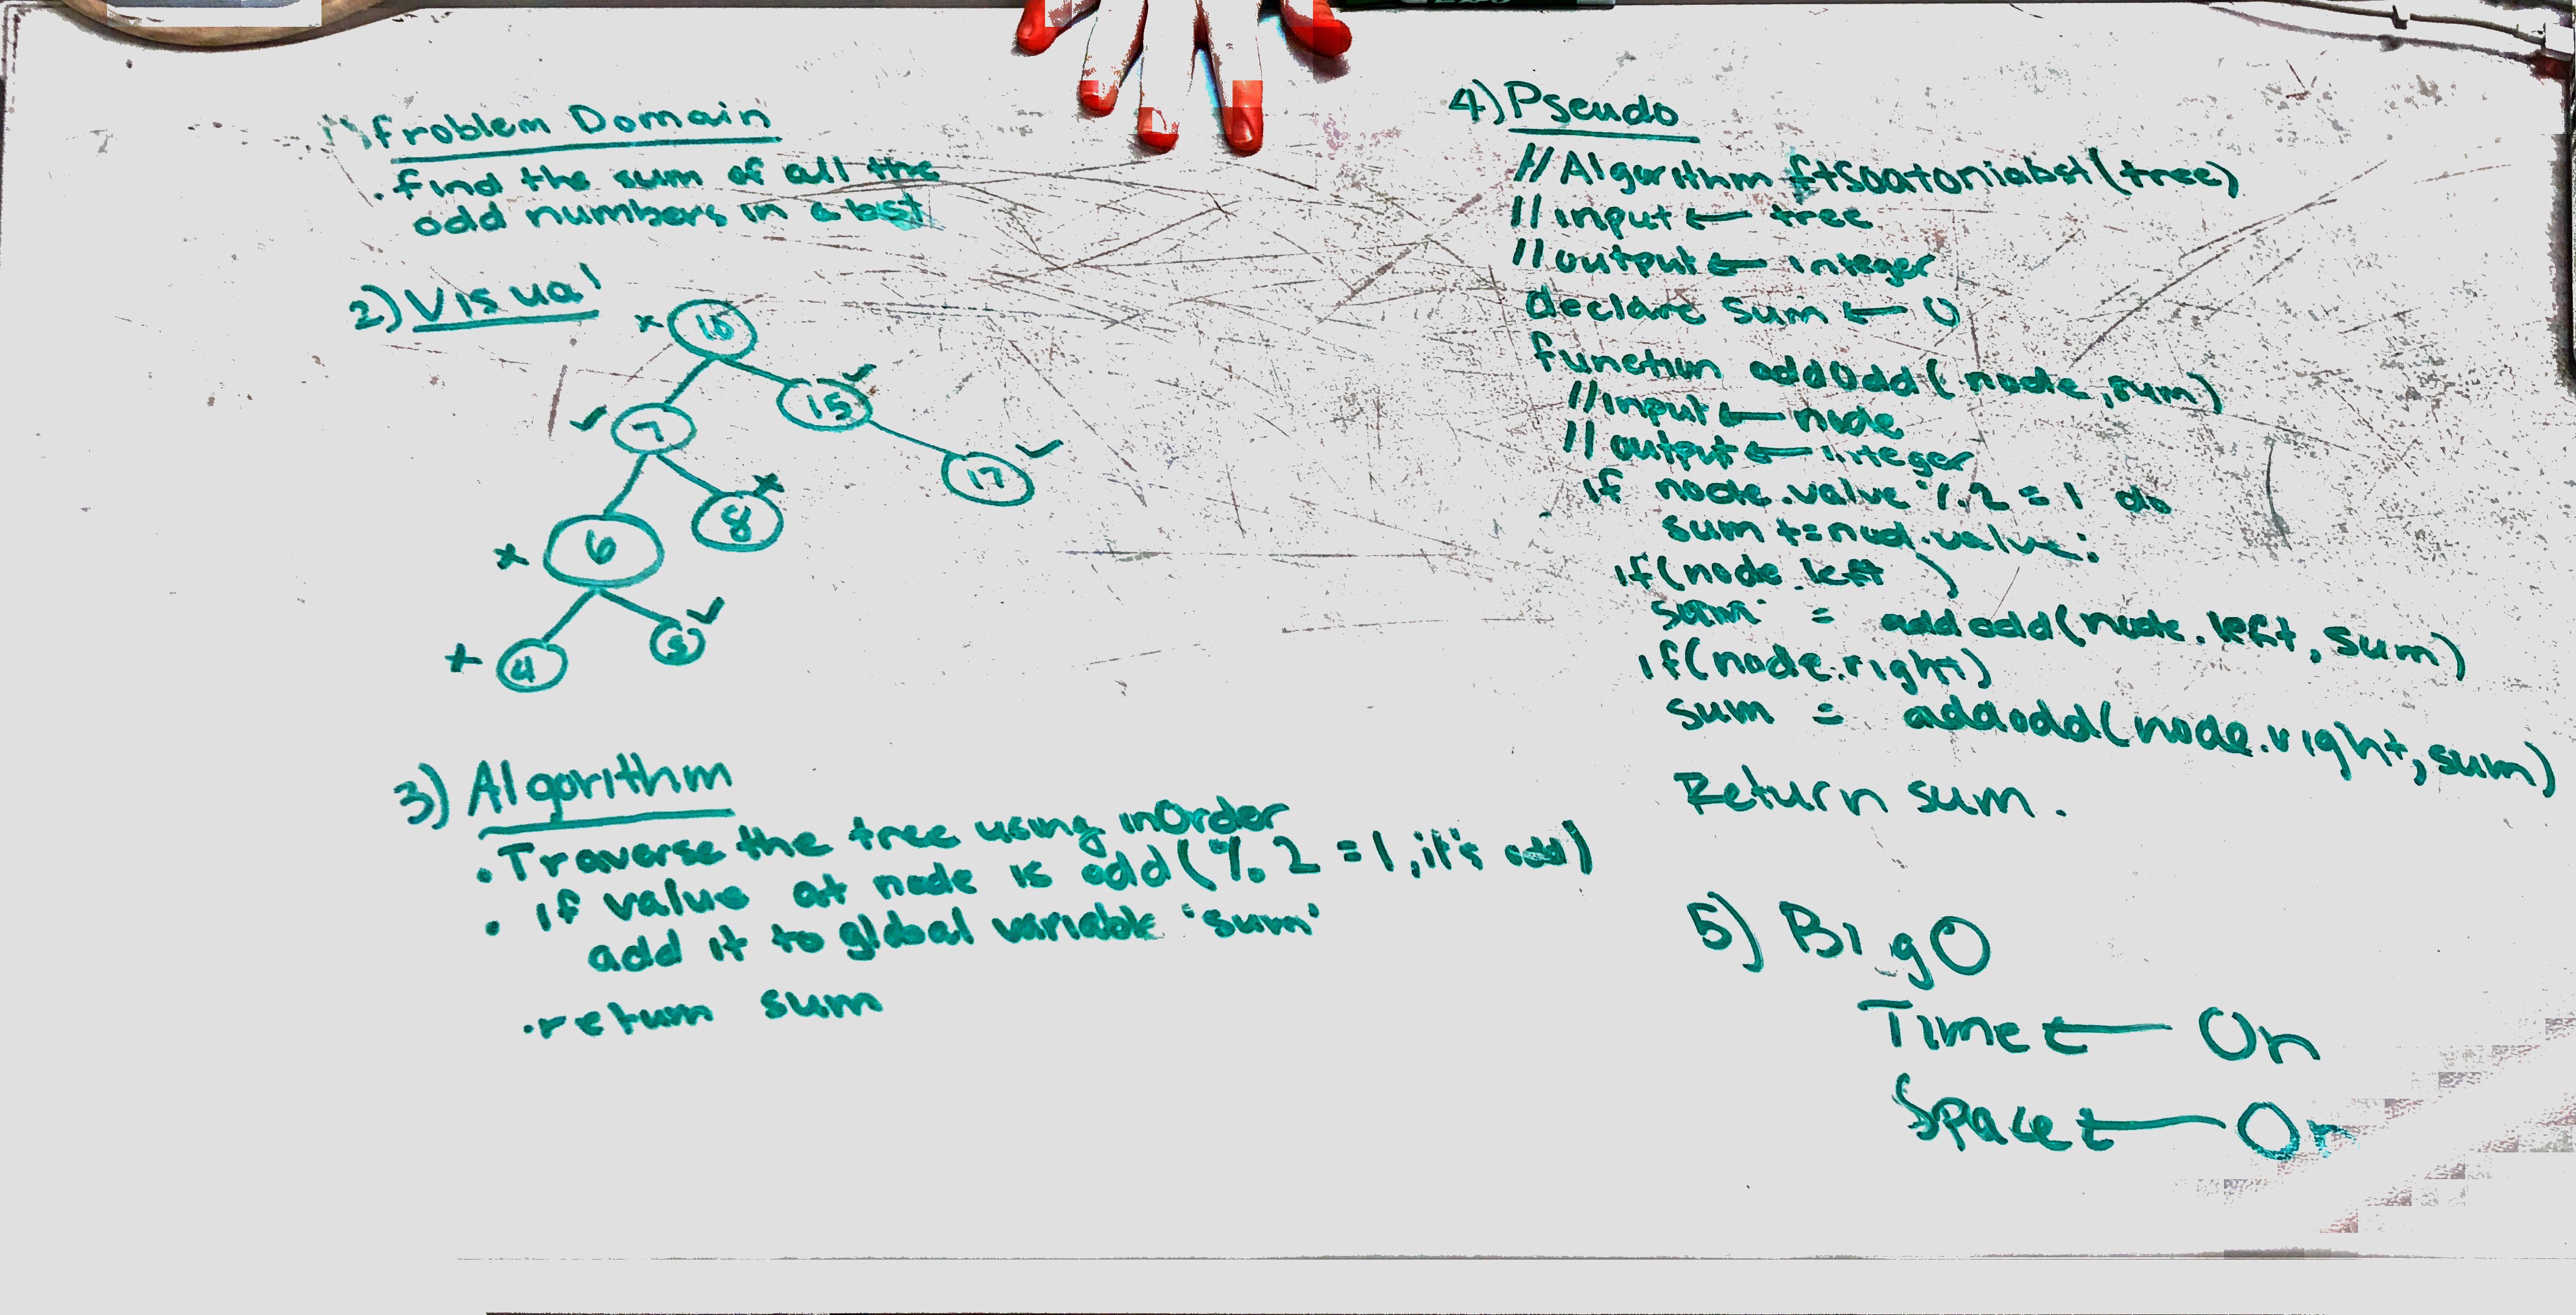 1) Problem Domain
. find the sum of all the
odd numbers in a bst
2) Visual
x 10
15 ✓
✓ 7
17 ✓
8 x
x 6
x 4
5 ✓
3) Algorithm
. Traverse the tree using inOrder
. if value at node is odd (% 2 = 1, it's odd)
add it to global variable 'sum'
. return sum
4) Pseudo
// Algorithm ftsoatoniabst(tree)
// input ← tree
// output ← integer
declare Sum ← 0
function addOdd( node, sum)
// input ← node
// output ← integer
if node.value % 2 = 1 do
sum += nod.value;
if(node.left )
sum = addodd(node.left, sum)
if(node.right)
sum = addodd(node.right, sum)
Return sum.
5) BigO
Time ← On
Space ← On